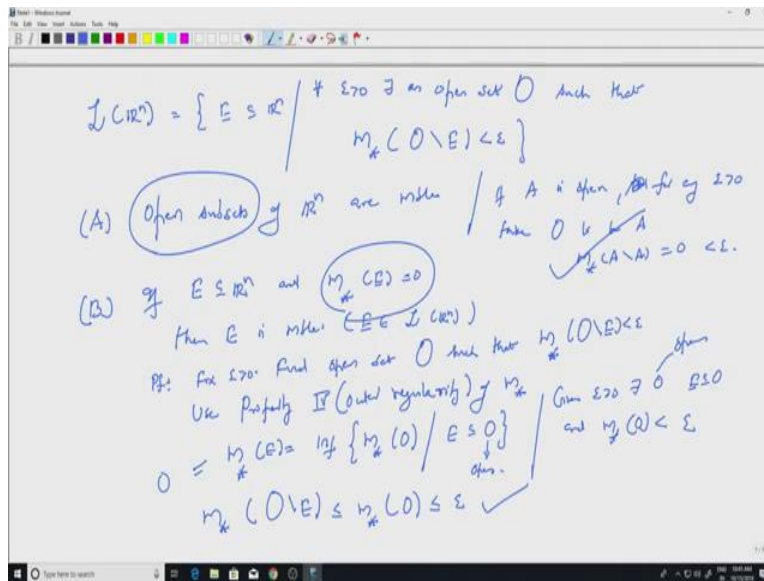 Note1 - Windows Journal
File Edit View Insert Actions Tools Help
L(ℝⁿ) = { E ⊆ ℝⁿ / ∀ ε>0 ∃ an open set O such that
m_*(O\E) < ε }
(A) Open subsets of ℝⁿ are mble / If A is open, for any ε>0
take O to be A
m_*(A\A) = 0 < ε.
(B) If E ⊆ ℝⁿ and m_*(E) = 0
then E is mble. (E ∈ L(ℝⁿ))
Pf: Fix ε>0. Find open set O such that m_*(O\E) < ε
Use Property IV (outer regularity) of m_*
0 = m_*(E) = inf { m_*(O) / E ⊆ O }
open.
Given ε>0 ∃ O E ⊆ O
open
and m_*(O) < ε
m_*(O\E) ≤ m_*(O) ≤ ε
Type here to search